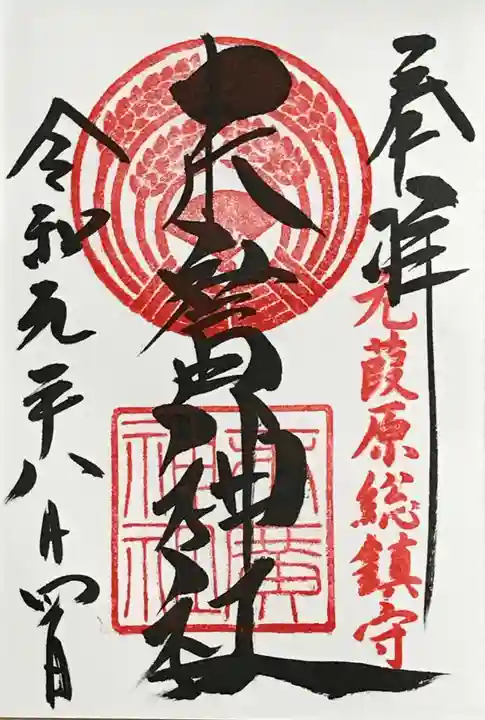 奉拝
元葭原総鎮守
末廣神社
末廣
神社
令和元年八月四日